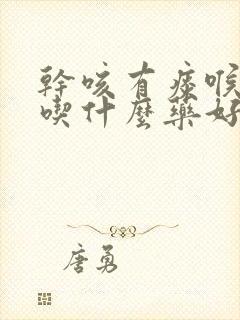 幹咳有痰喉
喫什麼藥好
唐勇